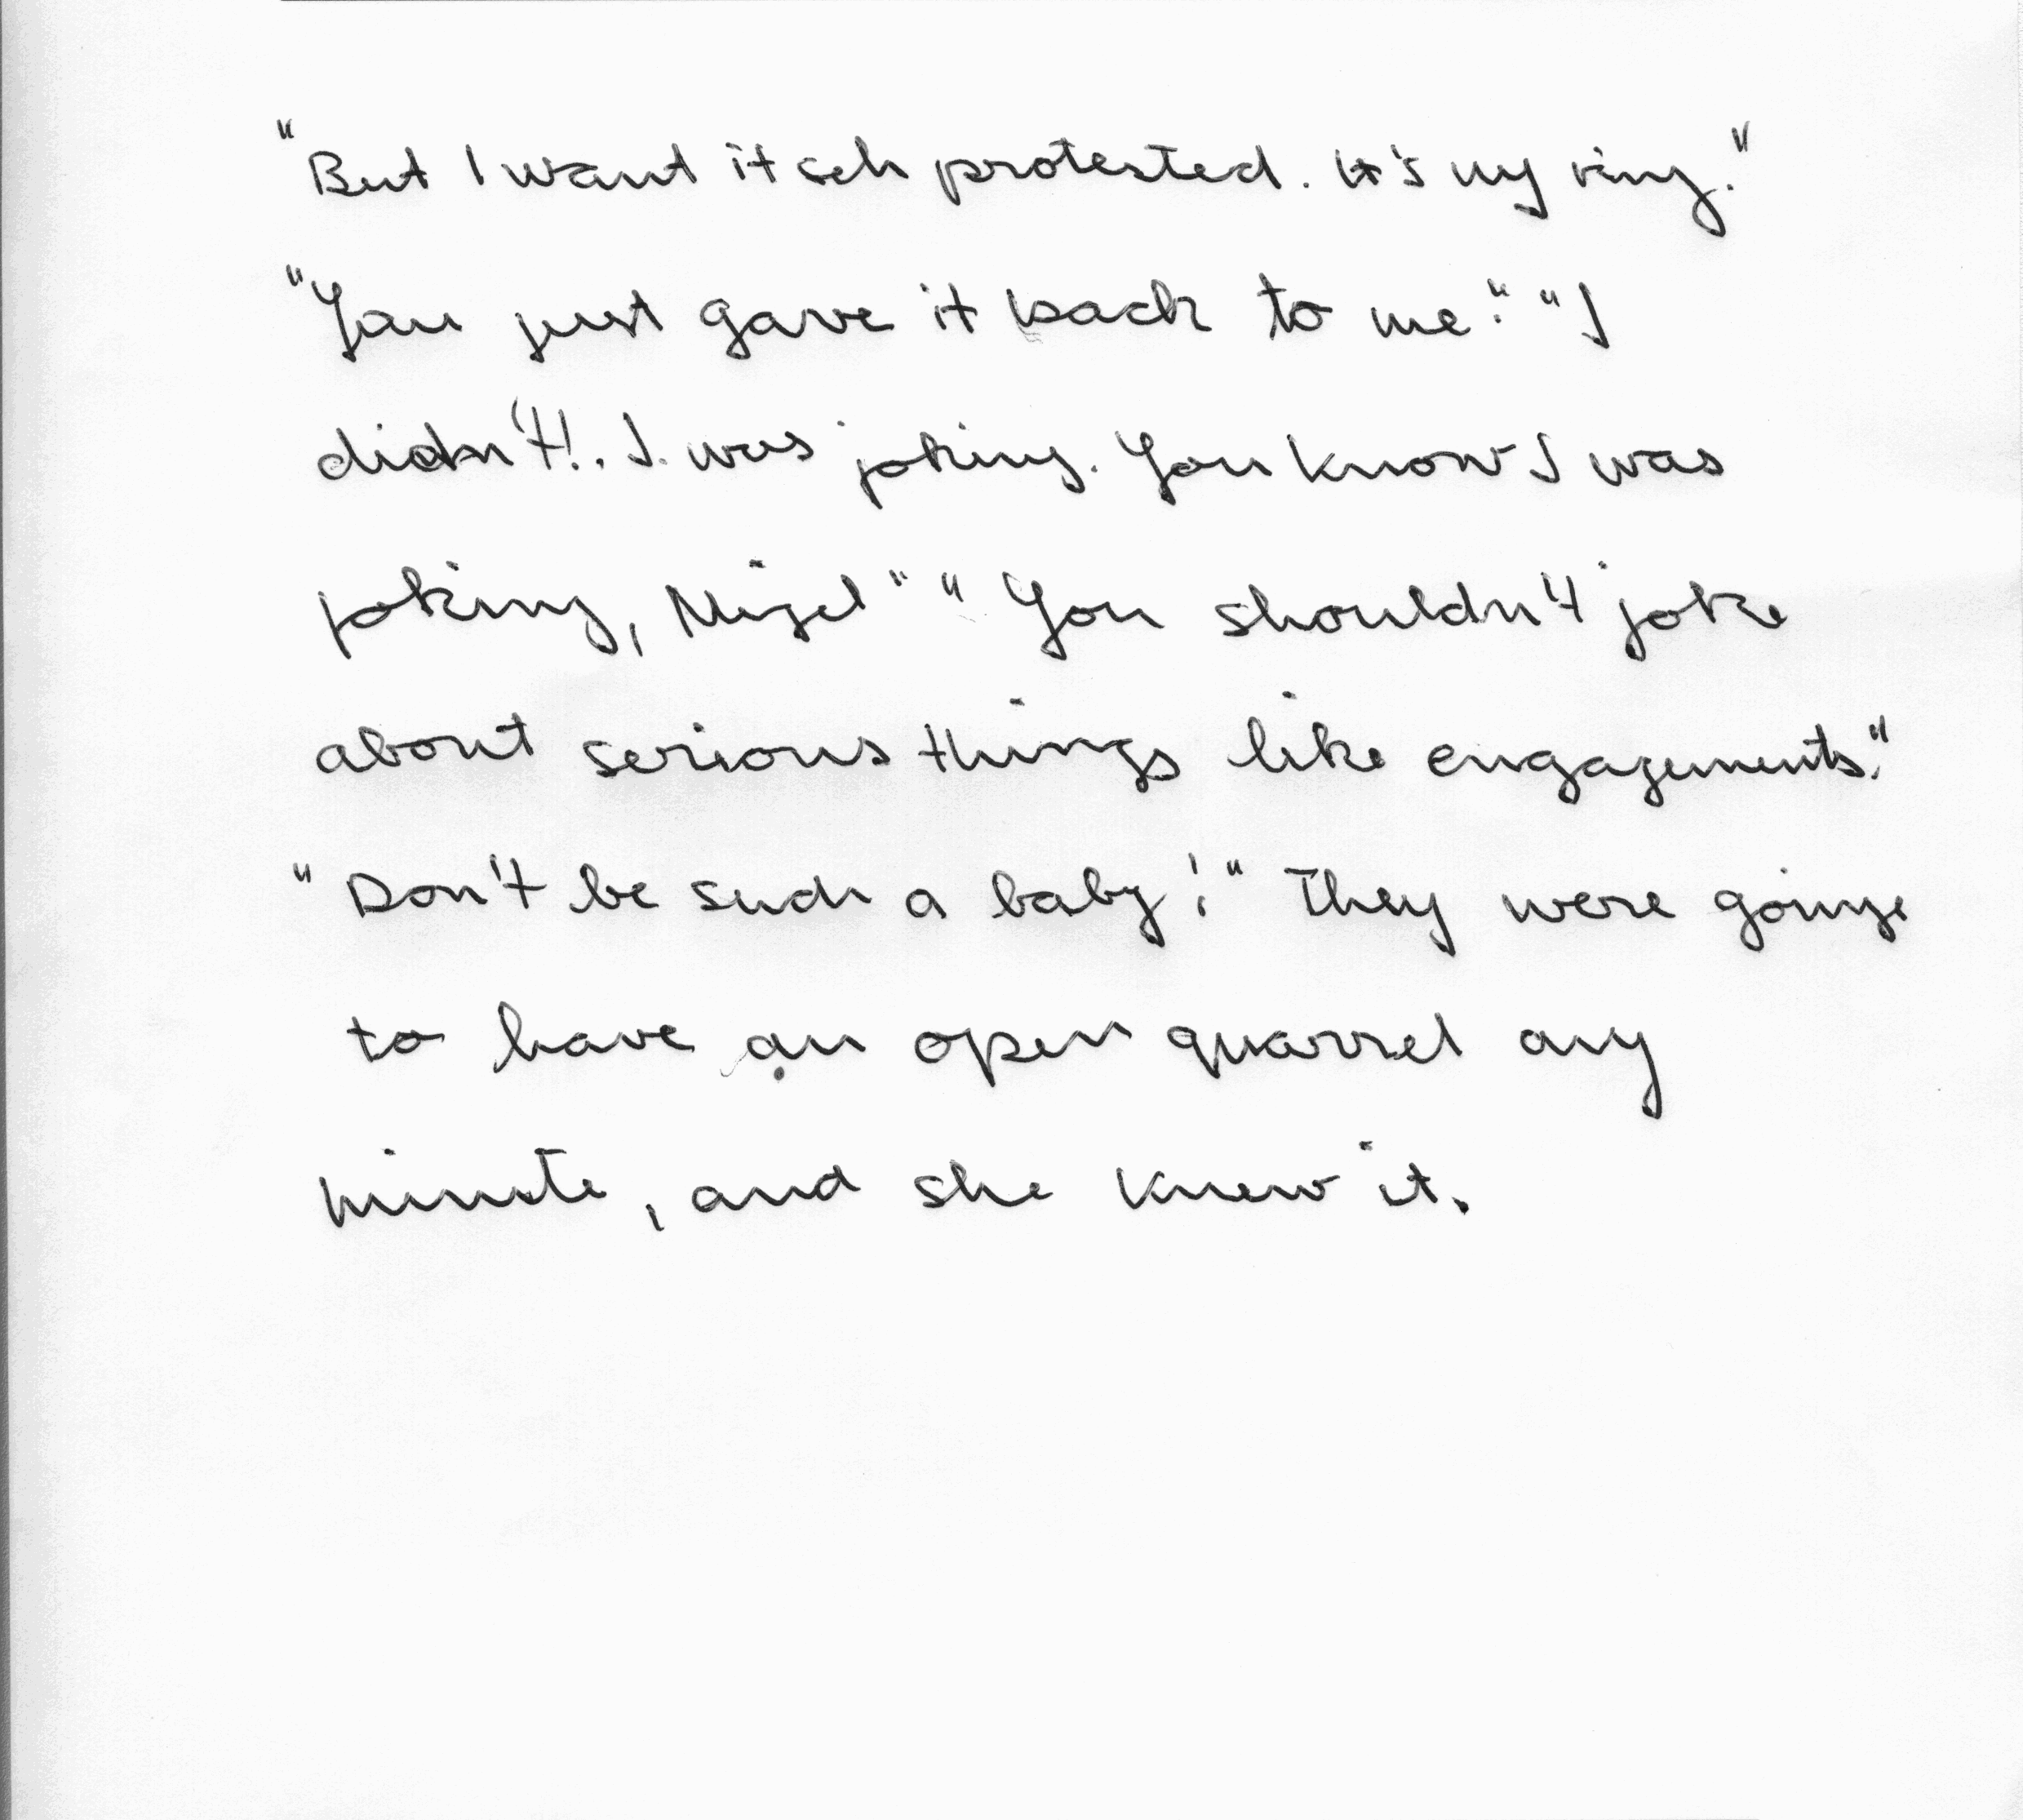 "But I want it seh protested. It's my ring."
"You just gave it back to me." "I
didn't!. I. was joking. You know I was
joking, Nigel" "You shouldn't joke
about serious things like engagements."
"Don't be such a baby!" They were going
to have an open quarrel any
minute, and she knew it.